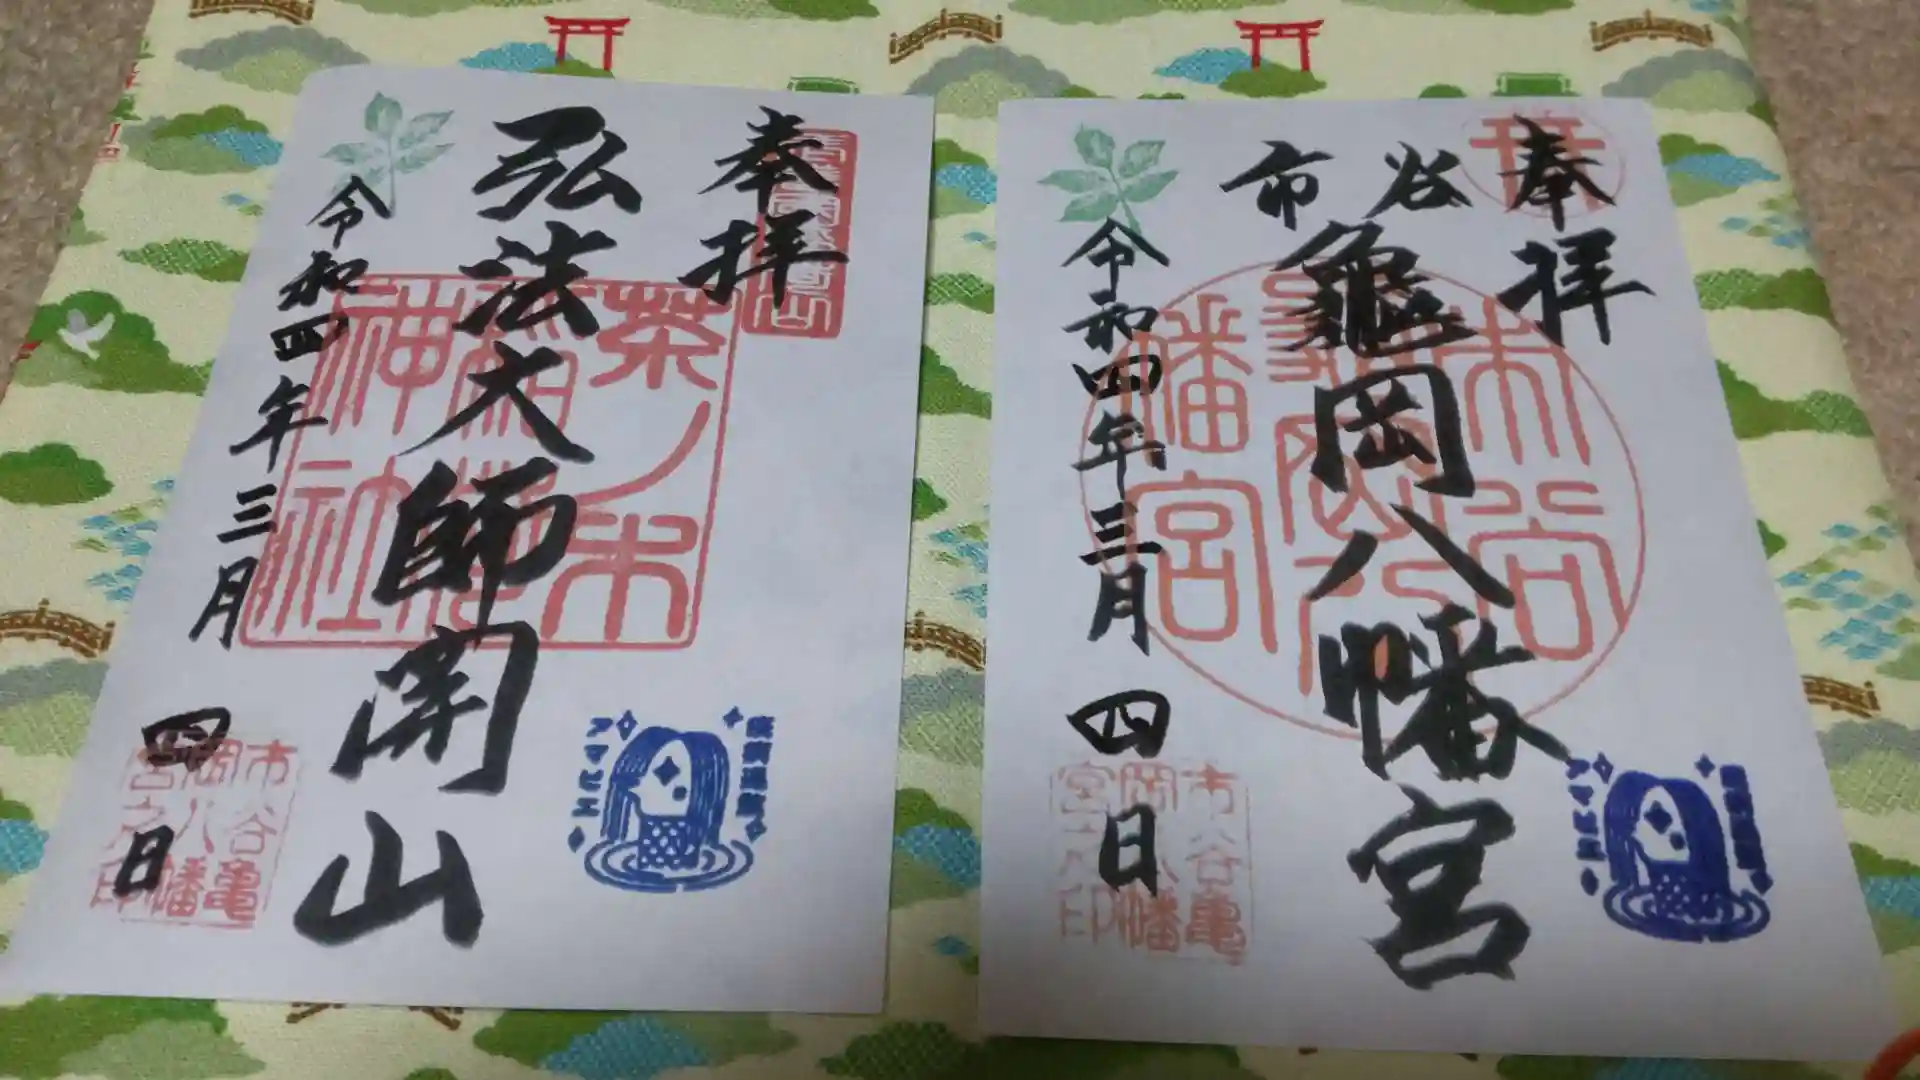 奉拝
弘法大師開山
令和四年三月四日
茶ノ木
稲荷
神社
市谷亀
岡八幡
宮之印
アマビエ
奉拝
市谷
龜岡八幡宮
令和四年三月四日
市谷
八幡宮
市谷亀
岡八幡
宮之印
アマビエ